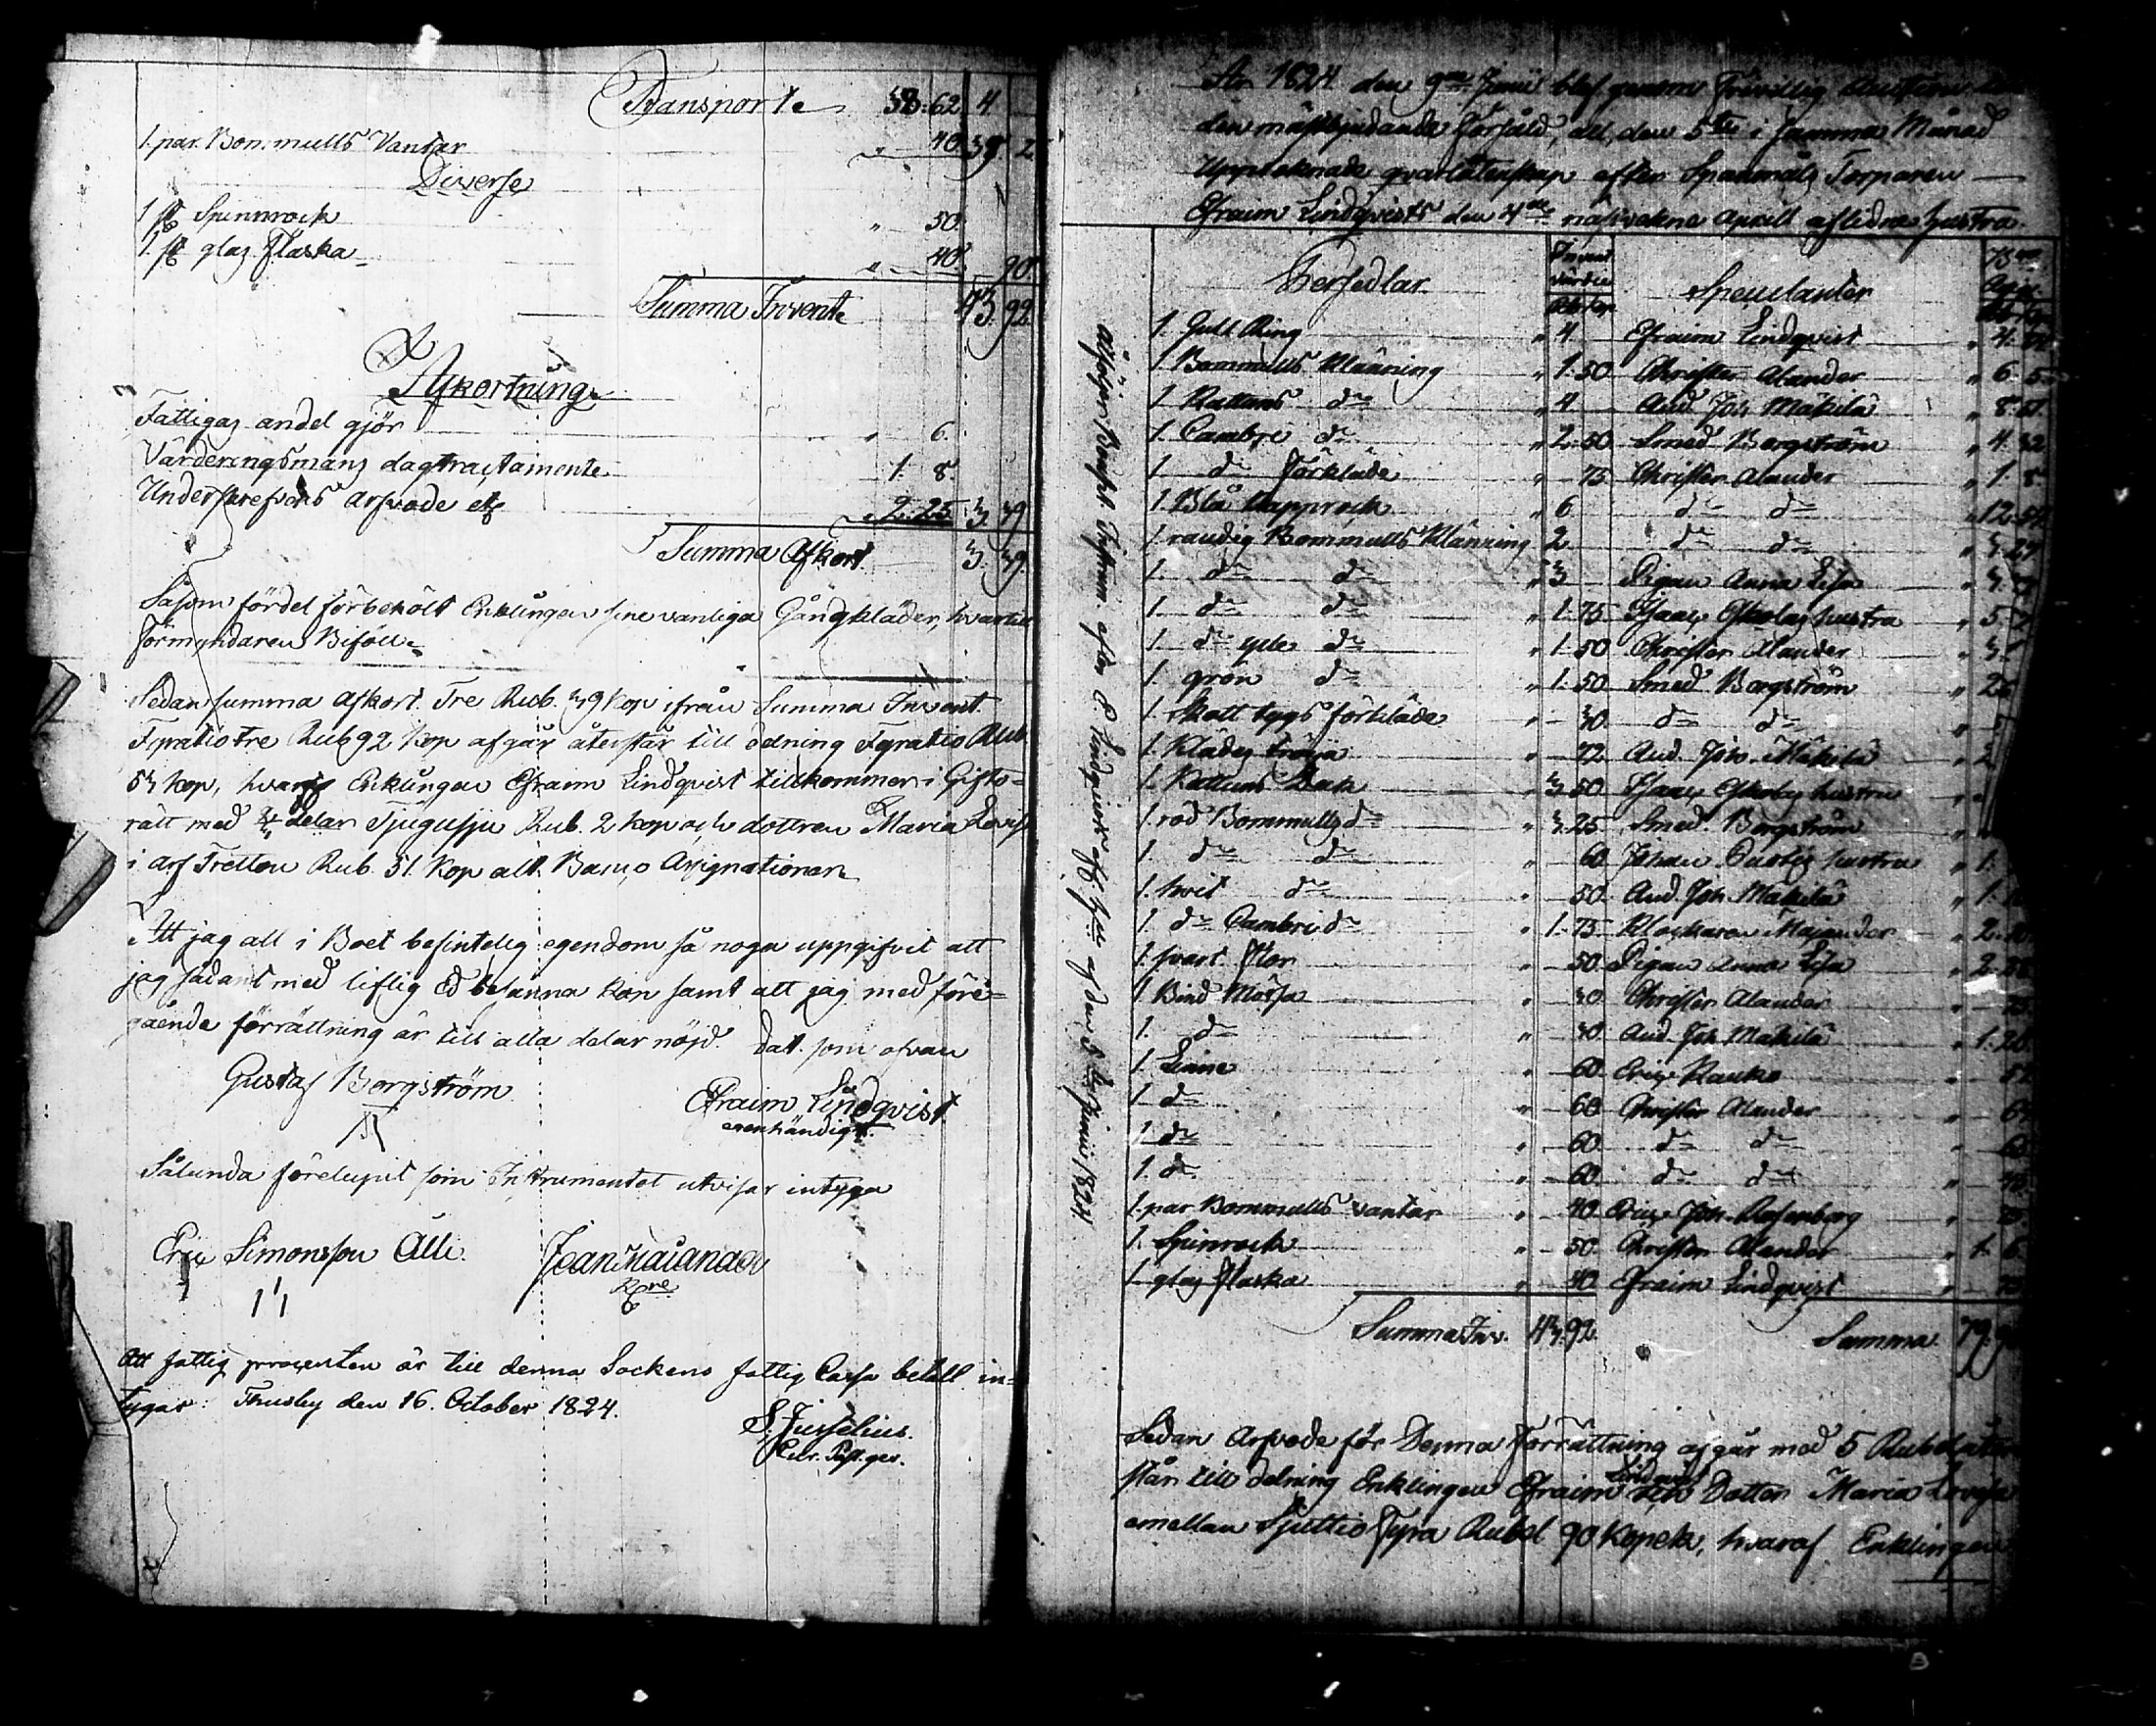 Transporte 38:62 4
1. par. Bommulls Vantar 40 39 2
Diverse
1 st Spinnrock 50
1. st glas flaska 40 90
Summa Invent 43 92
Afkortning
Fattigas andel gjör 6.
Värderingsmans dagtractamente 1. 8.
Underskrefvens arfvode etc 2.25 3. 39
Summa Afkort. 3. 39.
Såsom fördel förbehölt Enklingen sine vanliga Gångkläder, hvartill
förmyndaren Biföll.
Sedan summa afkort. Tre Rub. 39 kop ifrån Summa Invent.
Fyratiotre Rub 92 kop afgår återstår till delning Fyratio Rub
53 kop, hvaraf Enklingen Efraim Lindqvist tillkommer i Gifto-
rätt med 2/3 delar Tjugusju Rub. 2 kop och dottren Maria Lovisa
i arf Tretton Rub. 51. kop allt. Banco Assignationer
Att jag all i Boet befintelig egendom så noga uppgifvit att
jag sådant med liflig Ed besanna kan samt att jag med före-
gående förrättning är till alla delar nöjd. dat. som ofvan
Gustaf Borgström
Efraim Lindqvist.
egenhändigt.
Sålunda förelupit som Instrumentet utvisar intyga
Eric Simonsson Alli. Jean Majander
Att fattig procenten är till denna Sockens fattig Cassa betalt in-
tygar: Thusby den 16. October 1824.
S. Jusselius.
År 1824 den 9de Junii blef genom Frivillig Auction
den mästbjudande försåld, all, den 5te i samma Månad
Uppteknade qvarlåtenskap efter Spanmåls Torparen
Efraim Lindqvists den 4de nästvekne April aflidne hustru.
Persedlar Invent värdie Speculanter
1. Gull Ring " 4 Efraim Lindqvist " 4.
1 Bommulls Klänning " 1.50 Christer Alander " 6. 5
1 Kattuns do " 4 And. Joh Mäkilä " 8.
1. Cambri do " 2.50 Smed Borgström " 4. 32
1 do Förkläde " 75 Christer Alander " 1. 8
1. Blå Kapprock " 6 do do " 12.
1 randig Bommulls Klänning 2 do do " 3.
1. do do " 3 Pigan Anna Lisa
1 do do " 1.75 Isaac Eskolas hustru " 5.
1. do ylle do " 1.50 Christer Alander " 3.
1. grön do " 1.50 Smed Borgström " 2
1. Skatt tygs förkläde " 30 do do
1. Klädes tröja " 72 And. Joh. Mäkilä " 2
1. Kattuns Duk " 3.50 Isaac Eskolas hustru
1. röd Bommulls do " 3.25 Smed. Borgström
1. do do " 60 Johan hustru " 1.
1. hvit do " 50. And. Joh. Mäkilä " 1.
1. do Cambri do " 1.75 Klockaren Majander " 2.
1. svart flor " 50. Pigan Anna Lisa " 2.
1 Bind Mössa " 30. Christer Alander
1. do " 30 And. Joh Mäkilä " 1. 20
1 Linne " 60 Eric Rauko
1 do " 60 Christer Alander
1 do " 60. do do
1. do " 60. do do
1. par Bommulls vantar " 40 Eric Joh. Rosenberg
1. Spinrock " 50. Christer Alander " 1. 6
1. glas flaska " 40 Efraim Lindqvist
Summa Inv. 43.92. Summa 79.
Sedan Arfvode för Denna Förrättning afgår med 5 Rubel åter
står till delning Enklingen Efraim Lindqvist och Dotter Maria Lovisa
emellan Sjuttio fyra Rubel 90 Kopek, hvaraf Enklingen
afföljer Bouptt. Instrum. efter E Lindqvists afl. hu af den 5 Junii 1824